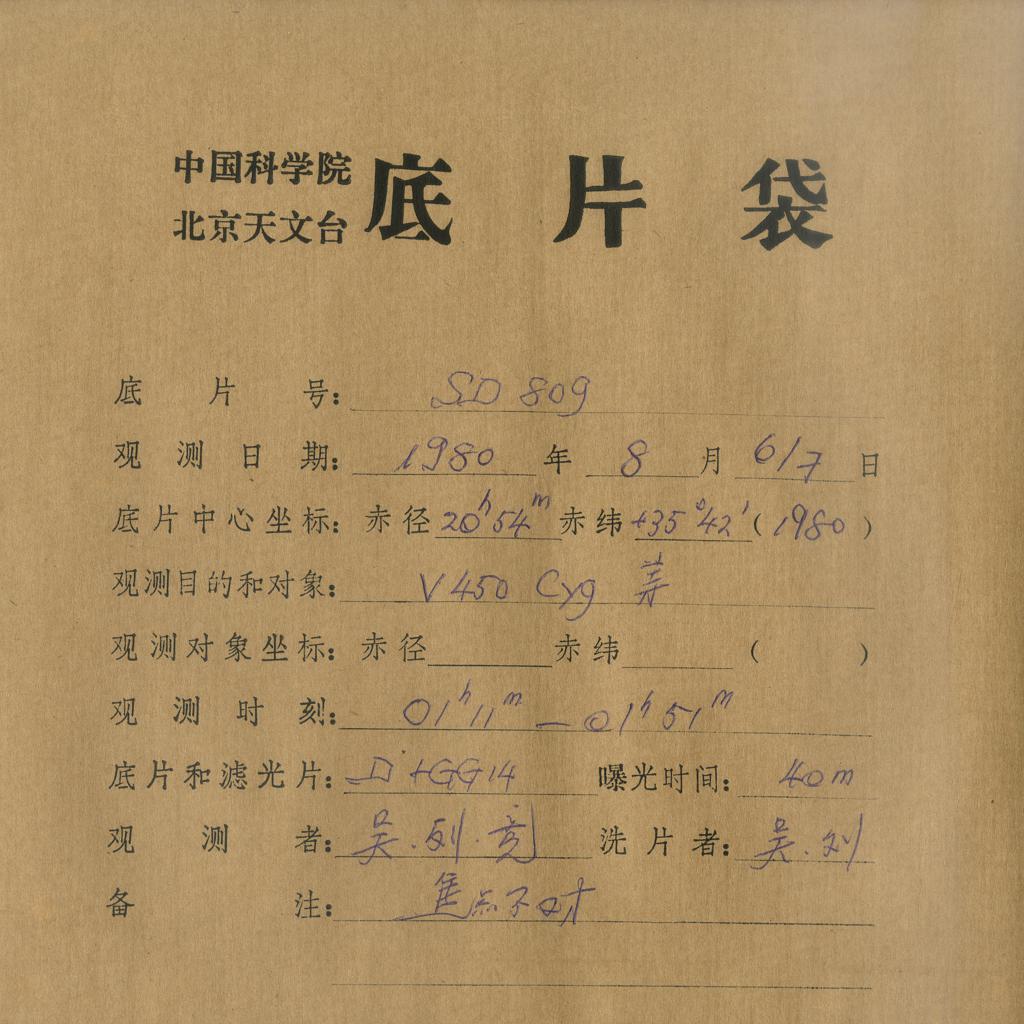 中国科学院
北京天文台 底片袋
底片号: SD 809
观测日期: 1980 年 8 月 6/7 日
底片中心坐标: 赤径 20h 54m 赤纬 +35°42′ (1980)
观测目的和对象: V450 Cyg
观测对象坐标: 赤径 赤纬 ( )
观测时刻: 01h 11m — 01h 51m
底片和滤光片: D+GG14 曝光时间: 40m
观测者: 吴.刘. 洗片者: 吴.刘
备注: 焦点不对